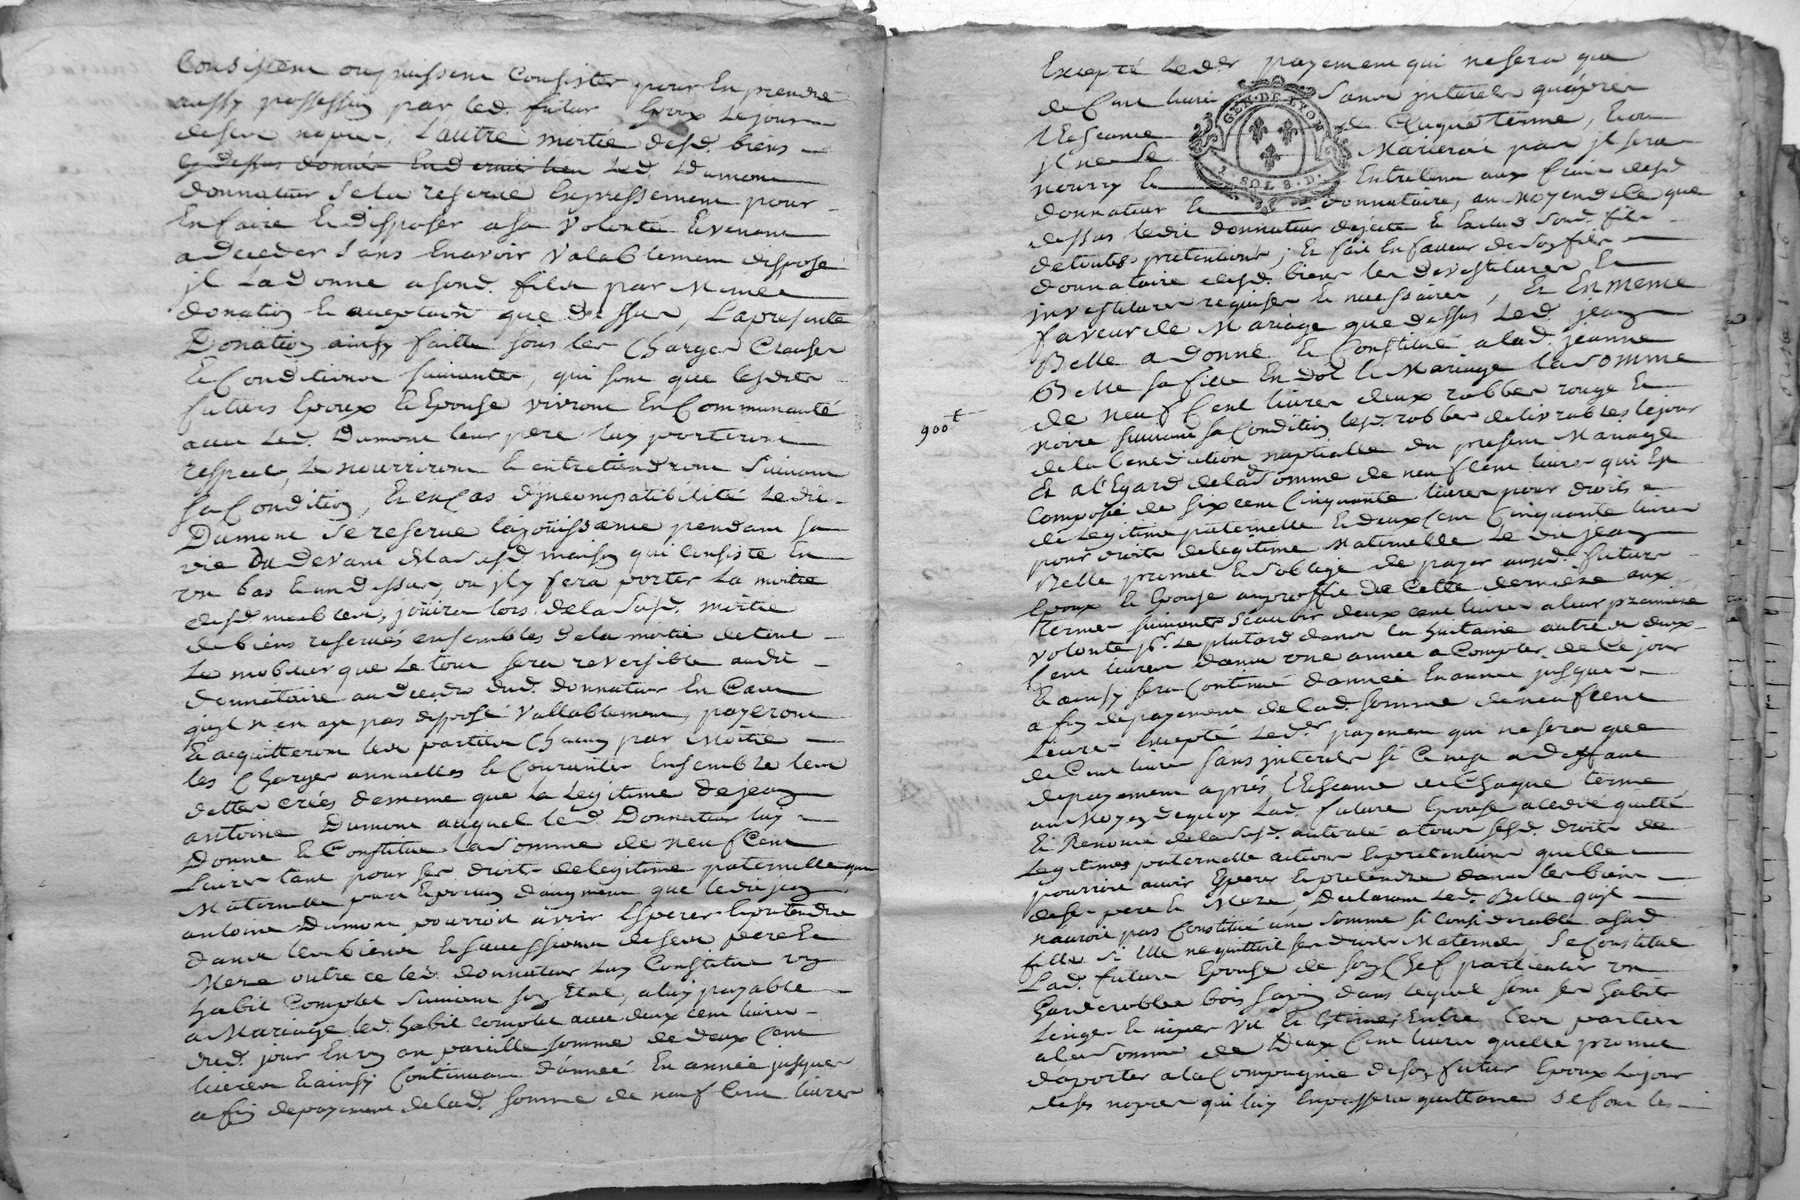 Consistent ou puissent Consister pour En prendre
aussy possession par led. futur Epoux le jour
de ses nopces, l'autre moitié desd. biens
cy dessus donnés En dernier lieu led. Dumont
donnateur se la reserve Expressement pour
En faire Et disposer a sa volonté Et venant
a deceder sans En avoir valablement disposé
jl La donne a sond. fils par Meme
donation Et aux plains que dessus, La presente
Donation ainsy faitte sous les Charges Clauses
Et Conditions suivantes, qui sont que lesdits
futurs Epoux Et Epouse vivront En Communauté
avec led. Dumont leur pere luy porteront
respect, Le nourriront Et entretiendront suivant
sa Condition, Et en Cas d'jncompatibilité Le dit
Dumont se reserve la joüissance pendant sa
vie du devant de la susd. maison qui Consiste En
un bas Et un dessus, ou jl y fera porter La moitié
desd. meubles, joüira lors de la susd. moitié
de biens reservés ensembles de la moitié de tout
Le mobilier que Le tout sera reversible audit
donnataire au deceds dud. donnateur En Cas
qu'jl n'en aye pas disposé vallablement, payeront
Et acquitteront les parties Chacun par Moitié
les Charges annuelles Et Courantes Ensemble leurs
dettes criés de meme que la Legitime de jean
antoine Dumont auquel led. Donnateur luy
Donne Et Constitue la somme de neuf Cent
Livres tant pour ses droits de legitime paternelle que
Maternelle part Et portion d'augment que ledit jean
antoine Dumont pourroit avoir Esperer Et pretendre
dans les biens Et successions de ses pere Et
Mere outre ce led. donnateur Luy Constitue un
habit Complet suivant son Etat, a luy payable
a Mariage led. habit complet avec deux cent livres
dud. jour En un an pareille somme de deux Cent
livres Et ainsy Continuant d'année En année jusques
a fin de payement de lad. somme de neuf Cent livres
Excepté Le der payement qui ne sera que
de Cent livres sans jnterets qu'après
l'Escheance de Chaque terme, Et ou
jl ne se Marieroit pas jl sera
nourry Et Entretenu aux frais desd.
donnateur Et donnataire, au Moyen de Ce que
dessus ledit donnateur dejette Et Exclud sond. fils
de toutes pretentions, Et fait En faveur de son fils
donnataire desd. biens les devestitures Et
jnvestitures requises Et necessaires, Et En meme
faveur de Mariage que dessus Led. jean
Belle a donné Et Constitué a lad. jeanne
Belle sa fille En dot Et Mariage la somme
900 ₶
de neuf Cent livres deux robbes rouge Et
noire suivant sa Condition lesd. robbes delivrables le jour
de la benediction nuptialle du present Mariage
Et a l'Egard de la somme de neuf Cent livres qui Est
Composée de six cent Cinquante livres pour droits
de Legitime paternelle Et deux Cent Cinquante livres
pour droits de legitime Maternelle Le dit jean
Belle promet Et s'oblige de payer auxd. futurs
Epoux Et Epouse au proffit de Cette derniere aux
termes suivants scavoir deux cent livres a leur premiere
volonté Et Le plutard dans la huitaine autre deux
Cent livres dans une année a Compter de Ce jour
Et ainsy sera Continué d'année En année jusques
a fin de payement de lad. somme de neuf Cent
Livres Excepté Le der payement qui ne sera que
de Cent livres sans jnterets si Ce n'est a deffaut
de payement après l'Escheance de Chaque terme
au Moyen de quoy Lad. future Epouse a cedé quitté
Et Renoncé de la susd. autorité a tous sesd. droits de
Legitimes paternelle actions Et pretentions quelle
pourroit avoir Esperer Et pretendre dans les biens
de ses pere Et Mere, Declarant Led. Belle qu'jl
n'auroit pas Constitué une somme si Considerable a sad.
fille si Elle ne quittoit ses droits Maternels, se Constitue
Lad. future Epouse de son Chef particulier un
Garderobbe bois sapin dans lequel sont ses habits
Linges Et nipes vu Et Estimés Entre les parties
a la somme de Deux Cent livres quelle promet
d'aporter a la Compagnie de son futur Epoux Le jour
de ses nopces qui luy En passera quittance se font les
GEN. DE LYON
1. SOL 8. D.